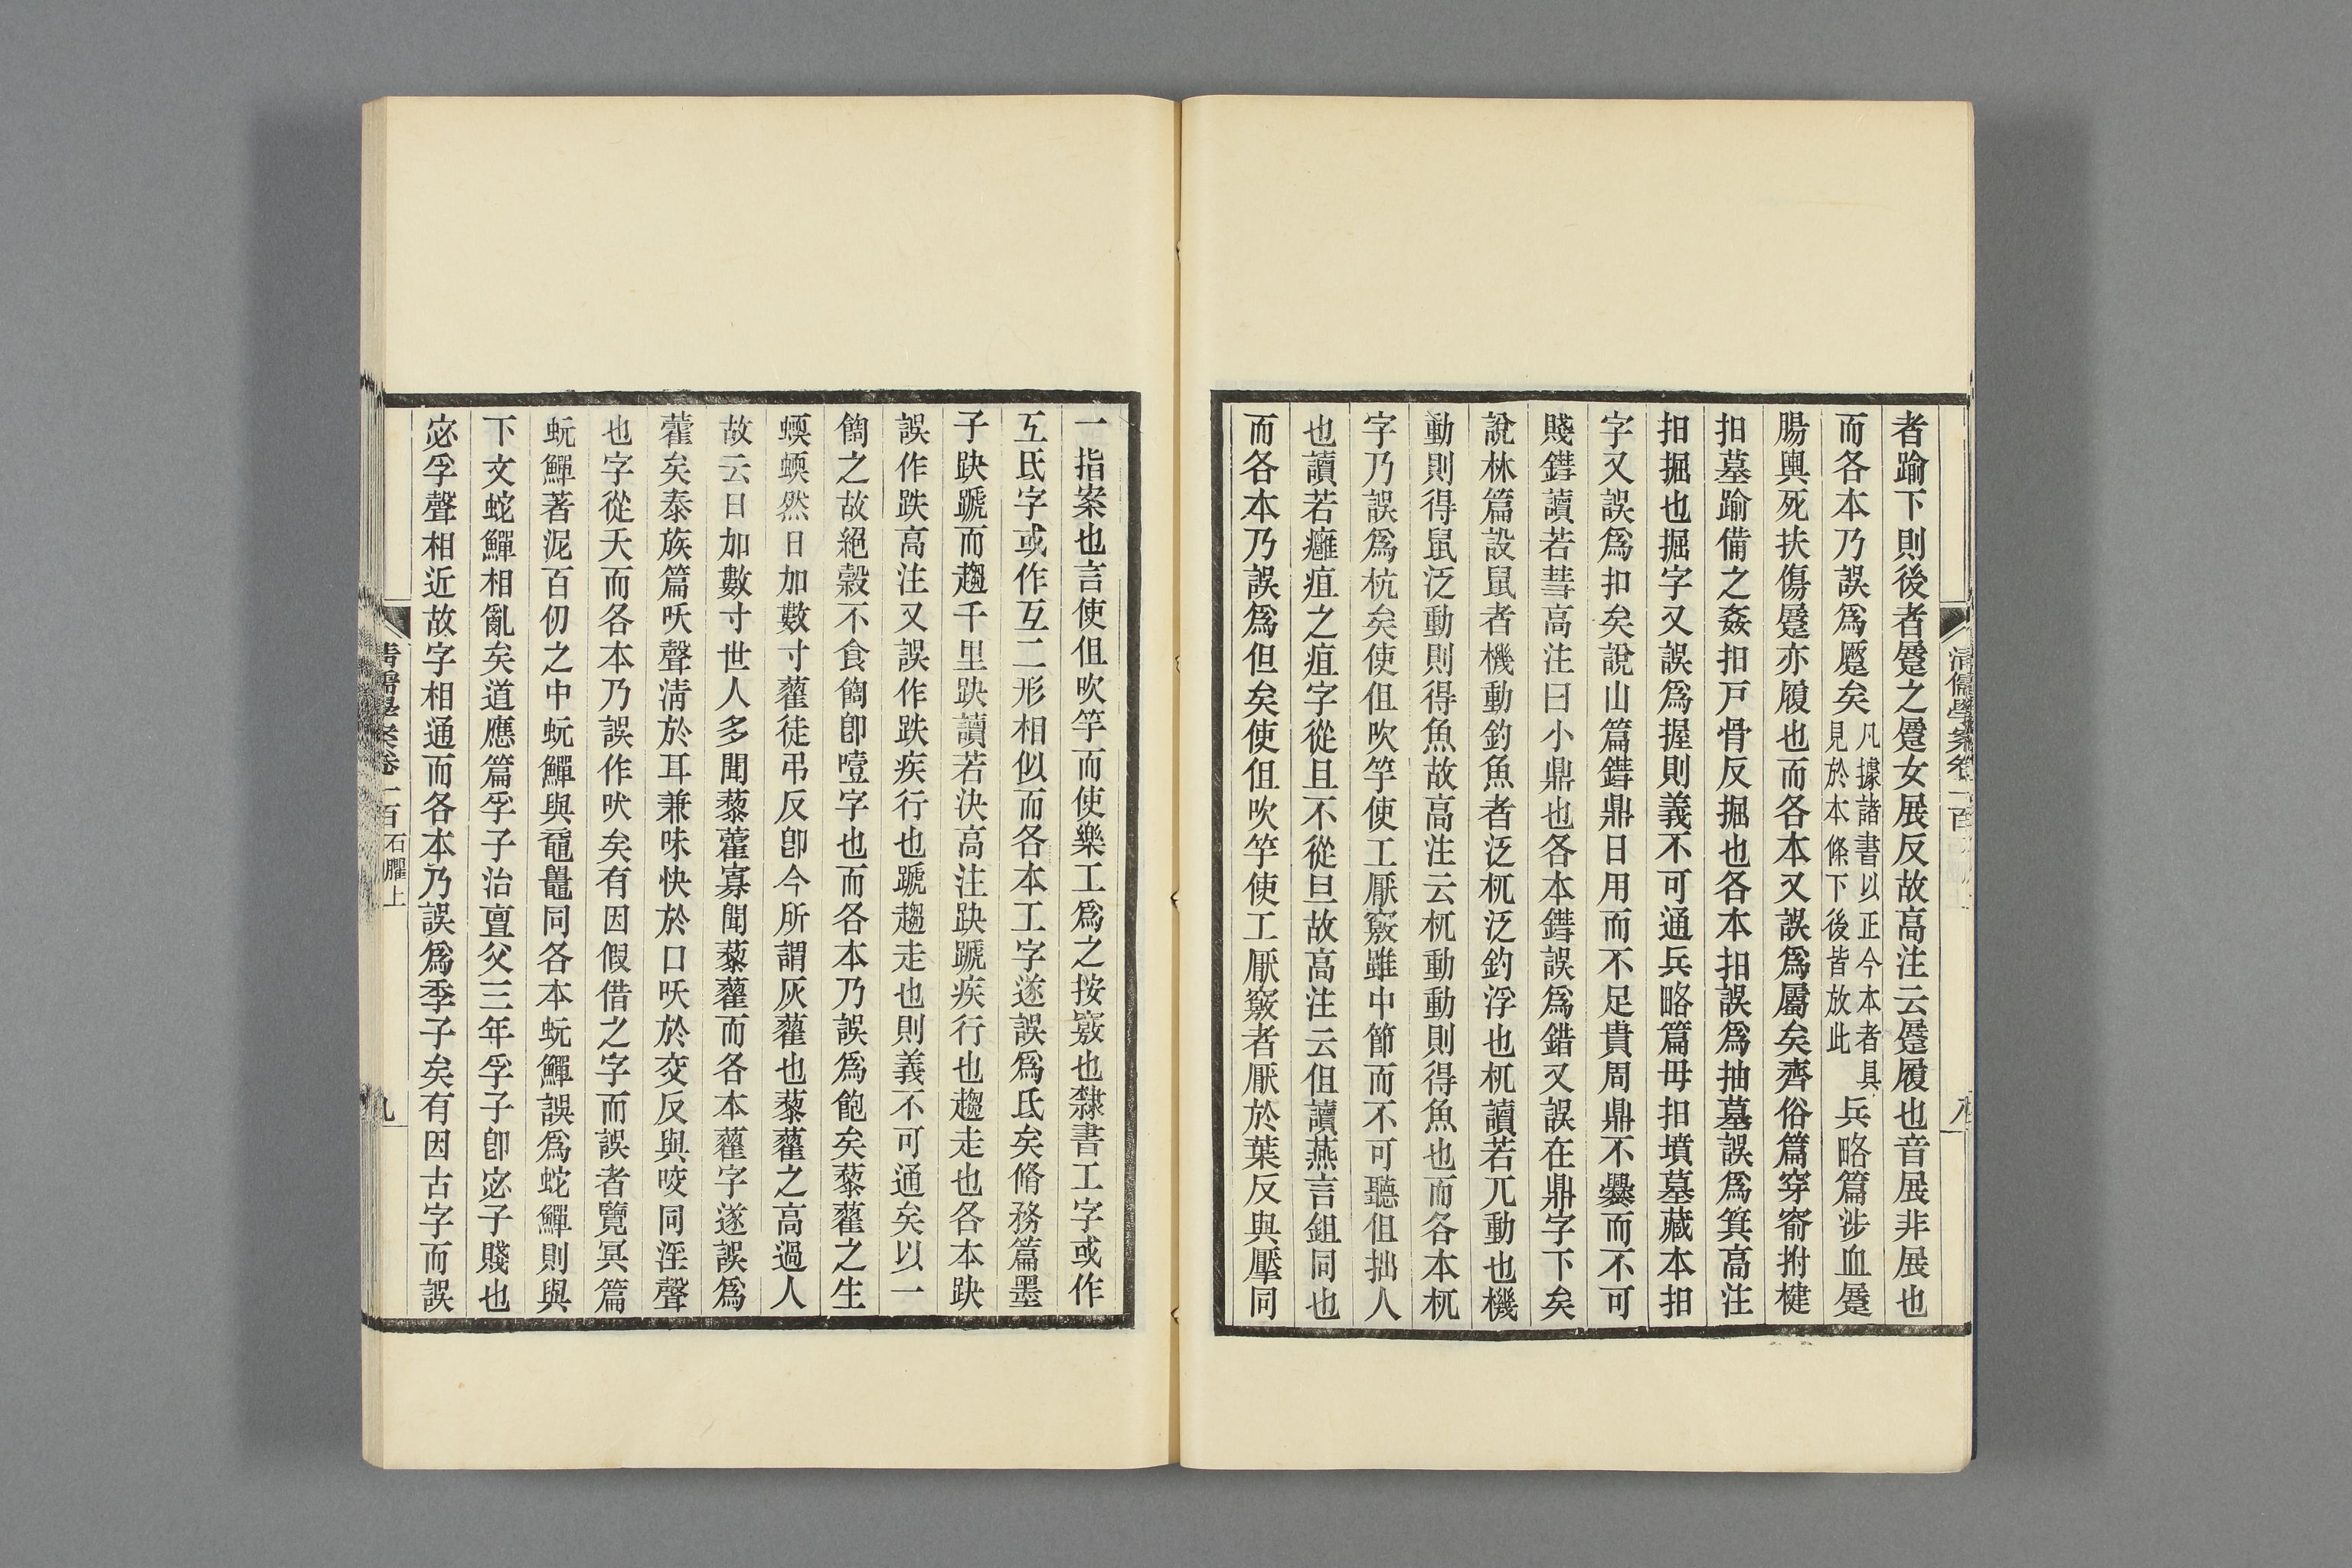 者踰下則後者蹷之蹷女展反故高注云蹷履也音展非展也
而各本乃誤爲蹷矣凡據諸書以正今本者具見於本條下後皆放此兵略篇涉血蹷
腸輿死扶傷蹷亦履也而各本又誤爲屬矣齊俗篇穿窬拊楗
抇墓踰備之姦抇戸骨反掘也各本抇誤爲抽墓誤爲箕高注
抇掘也掘字又誤爲握則義不可通兵略篇毋抇墳墓藏本抇
字又誤爲扣矣說山篇鏏鼎日用而不足貴周鼎不爨而不可
賤鏏讀若彗高注曰小鼎也各本鏏誤爲錯又誤在鼎字下矣
說林篇設鼠者機動釣魚者泛杌泛釣浮也杌讀若兀動也機
動則得鼠泛動則得魚故高注云杌動動則得魚也而各本杌
字乃誤爲杭矣使但吹竽使工厭竅雖中節而不可聽伹拙人
也讀若癰疽之疽字從且不從旦故高注云伹讀燕言鉏同也
而各本乃誤爲但矣使伹吹竽使工厭竅者厭於葉反與擪同
一指案也言使伹吹竽而使樂工爲之按竅也隸書工字或作
互氐字或作互二形相似而各本工字遂誤爲氐矣脩務篇墨
子趹蹏而趨千里趹讀若決高注趹蹏疾行也趨走也各本趹
誤作跌高注又誤作跌疾行也蹏趨走也則義不可通矣以一
飼之故絕穀不食飼卽噎字也而各本乃誤爲飽矣藜藿之生
蝡蝡然日加數寸藿徒弔反卽今所謂灰藿也藜藿之高過人
故云日加數寸世人多聞藜藿寡聞藜藿而各本藿字遂誤爲
藿矣泰族篇㕭聲淸於耳兼味快於口㕭於交反與咬同淫聲
也字從夭而各本乃誤作吠矣有因假借之字而誤者覽冥篇
蚖鱓著泥百仞之中蚖鱓與黿鼉同各本蚖鱓誤爲蛇鱓則與
下文蛇鱓相亂矣道應篇孚子治亶父三年孚子卽宓子賤也
宓孚聲相近故字相通而各本乃誤爲季子矣有因古字而誤
清儒學案卷一百 石臞上 九